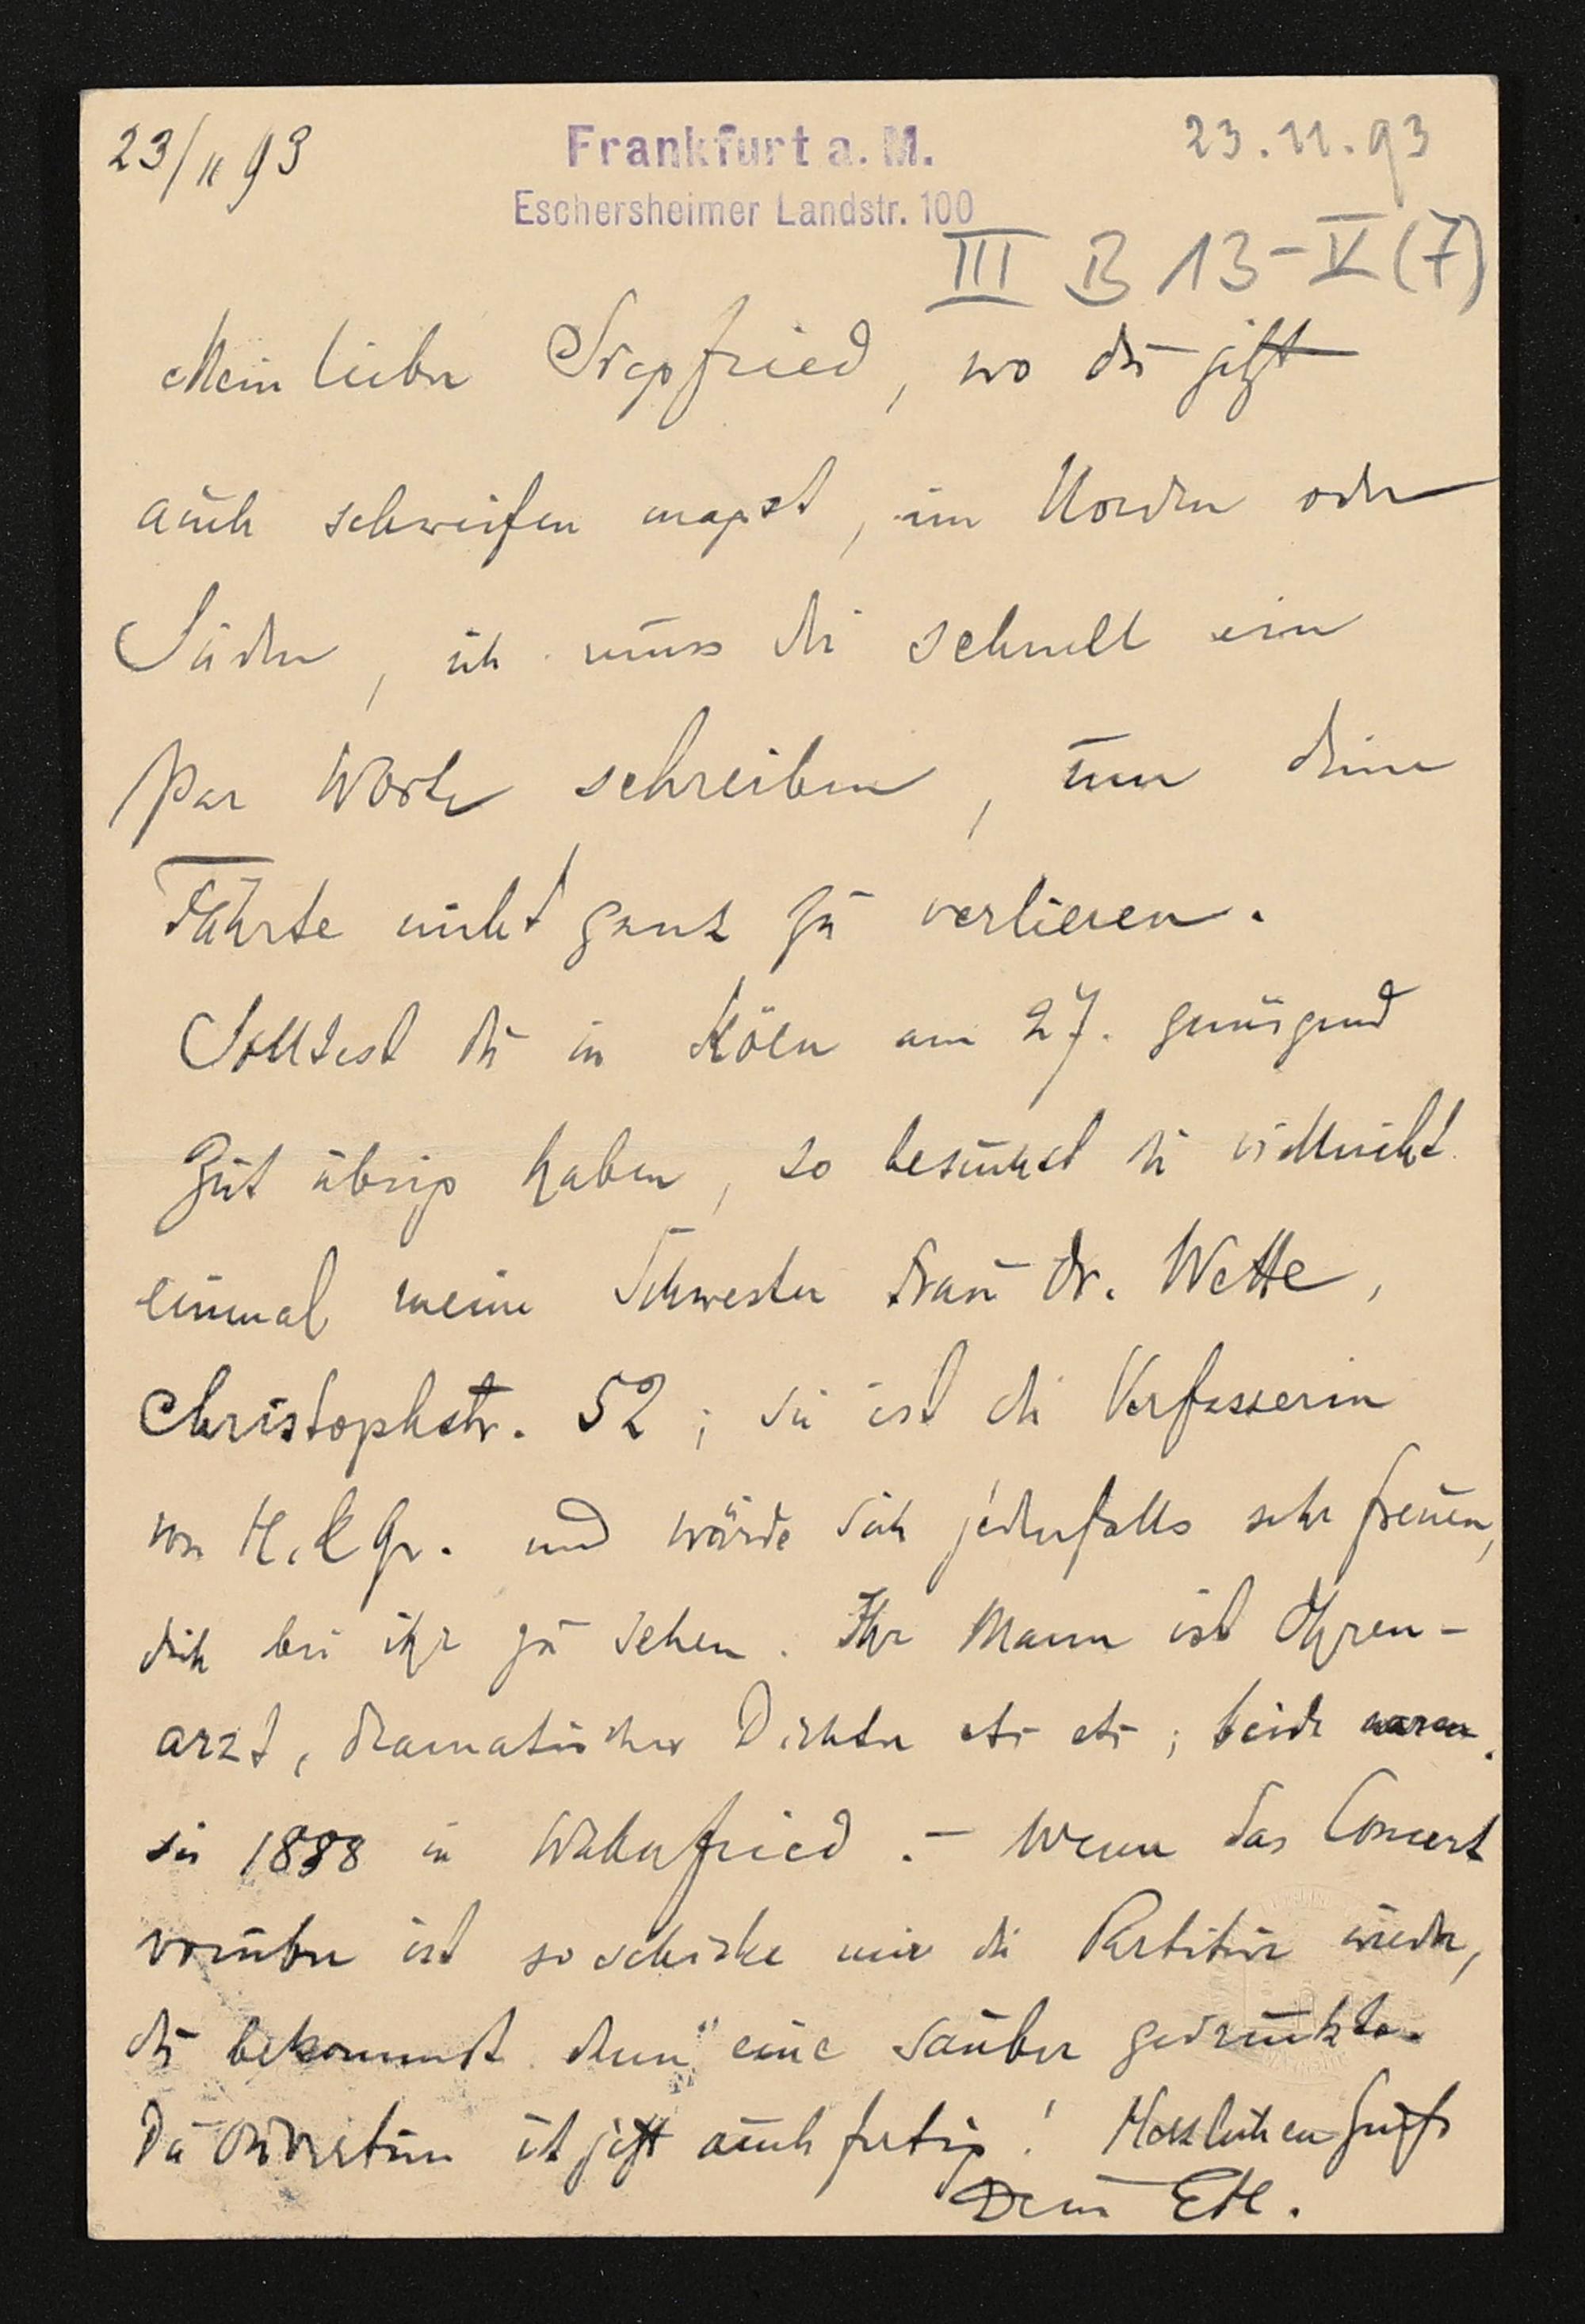 23/11 93
Frankfurt a. M.
23.11.93
Eschersheimer Landstr. 100
III B 13-V(7)
Mein lieber Siegfried, wo du jetzt
auch schweifen magst, im Norden oder
Süden, ich muss dir schnell ein
par Worte schreiben, um deine
Fährte nicht ganz zu verlieren.
Solltest du in Köln am 27. genügend
Zeit übrig haben, so besuchst du vielleicht
einmal meine Schwester Frau Dr. Wette,
Christophstr. 52; sie ist die Verfasserin
von H. & Gr. und würde sich jedenfalls sehr freuen,
dich bei ihr zu sehen. Ihr Mann ist Ohren-
arzt, dramatischer Dichter etc etc; beide waren
sie 1888 in Wahnfried. – Wenn das Concert
vorüber ist so schicke mir die Partitur wieder,
du bekommst dann eine sauber gedruckte.
Die Ouverture ist jetzt auch fertig! Herzlichen Gruß
Dein EH.